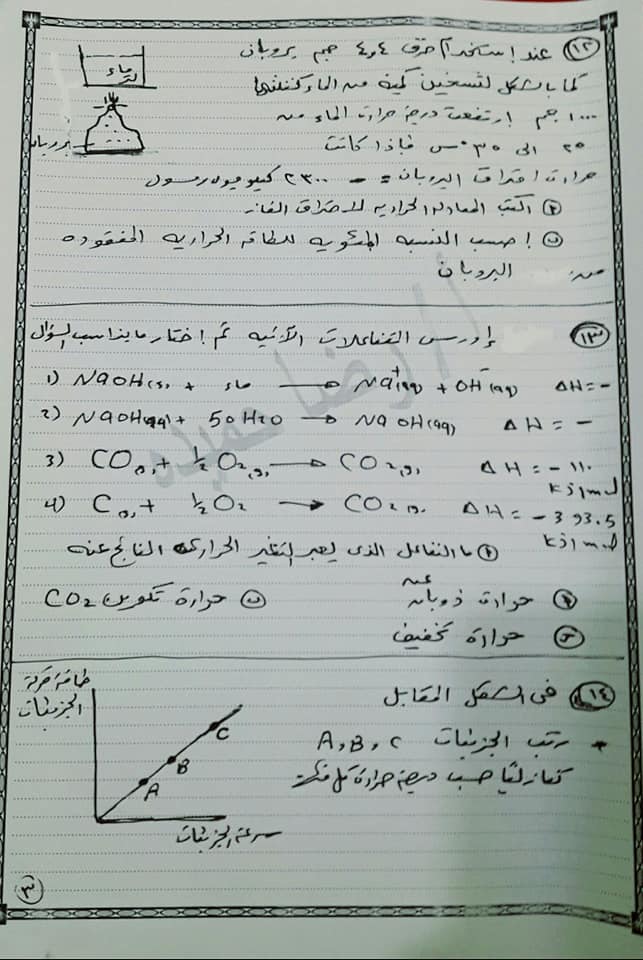 (١٢) عند إستخدام حرق ٤,٤ جم بروبان
كما بالشكل لتسخين كمية من الماء كتلتها
١٠٠٠ جم إرتفعت درجة حرارة الماء من
٢٥ الى ٣٥ °س فإذا كانت
حرارة احتراق البروبان = - ٢٣٠٠ كيلوجول/مول
(أ) اكتب المعادلة الحرارية للاحتراق الغاز
(ب) إحسب النسبه المئويه للطاقه الحراريه المفقوده
من البروبان
ماء
بروبان
(١٣) إدرس التفاعلات الآتيه ثم إختار ما يناسب السؤال
1) NaOH(s) + ماء → Na+(aq) + OH-(aq) ΔH = -
2) NaOH(aq) + 50 H2O → NaOH(aq) ΔH = -
3) CO(g) + ½ O2(g) → CO2(g) ΔH = - ١١٠
kJ/mol
4) C(s) + ½ O2 → CO2(g) ΔH = - 393.5
kJ/mol
(أ) ما التفاعل الذى يعبر التغير الحرارى الناتج عنه
عن
(أ) حرارة ذوبان (ب) حرارة تكوين CO2
(ج) حرارة تخفيف
(١٤) فى الشكل المقابل
* رتب الجزيئات A, B, C
تنازليًا حسب درجة حرارة كل منها
طاقة حركة
الجزيئات
C
B
A
سرعة الجزيئات
أ/ رضا حميده
(٣)